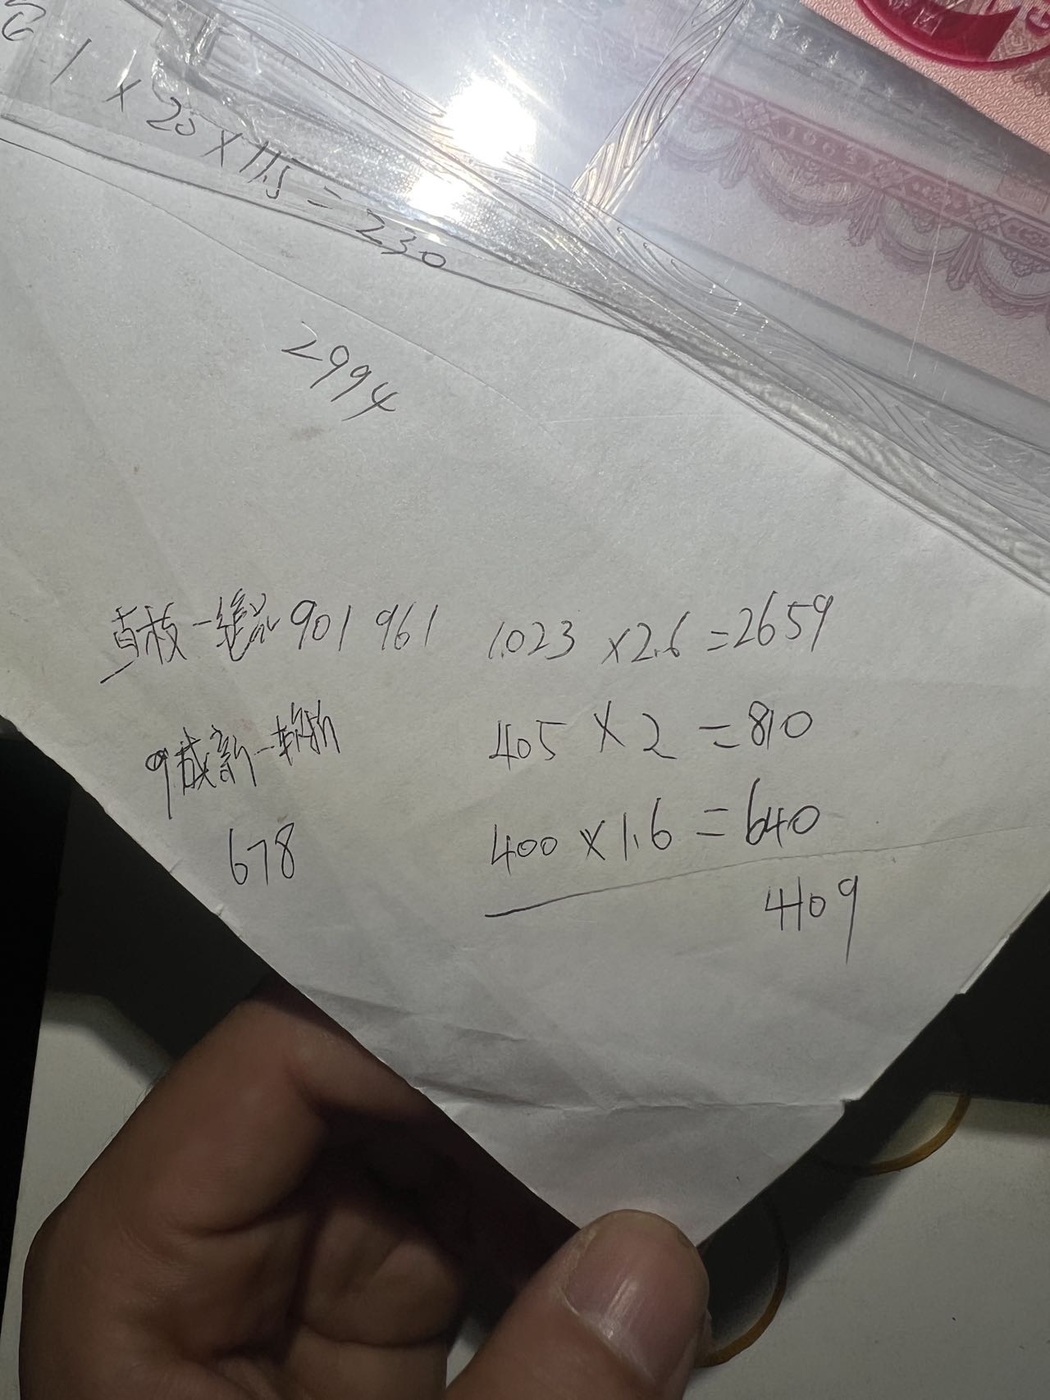 1 × 20 × 11.5 = 230
2994
直板一绝品 901 961 1.023 × 2.6 = 2659
9成新一 405 × 2 = 810
678 400 × 1.6 = 640
4109